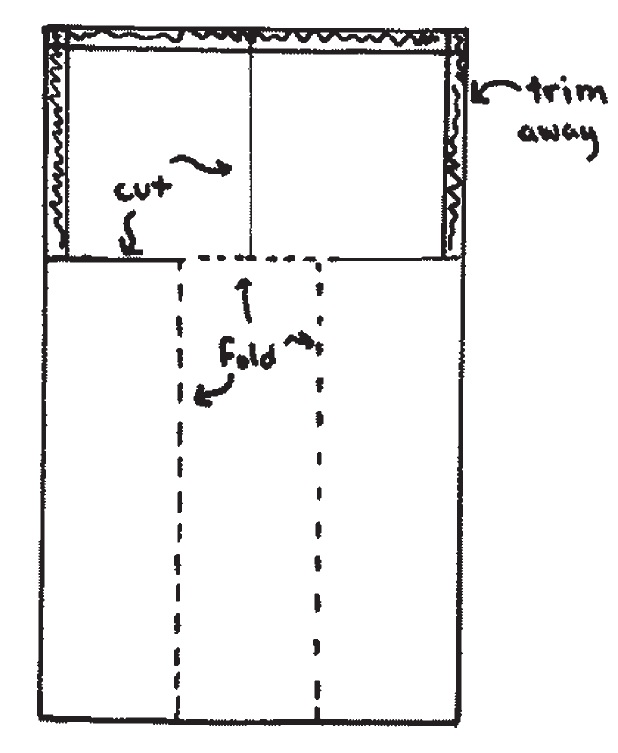 trim
away
cut
fold